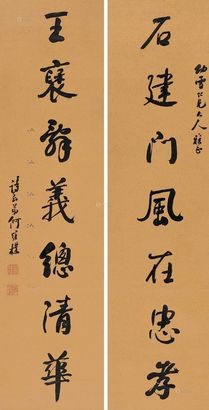 幼雪仁兄大人雅正
石建门風在忠孝
王褒辭義總清華
詩孫弟何維樸